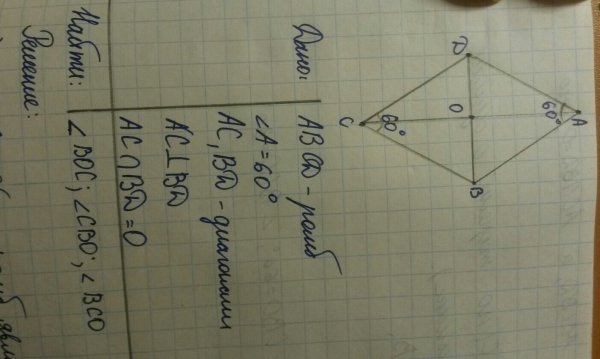 A
60°
D
O
B
60°
C
Дано:
ABCD - ромб
∠A = 60°
AC, BD - диагонали
AC ⊥ BD
AC ∩ BD = O
Найти:
∠BOC; ∠CBO; ∠BCO
Решение: